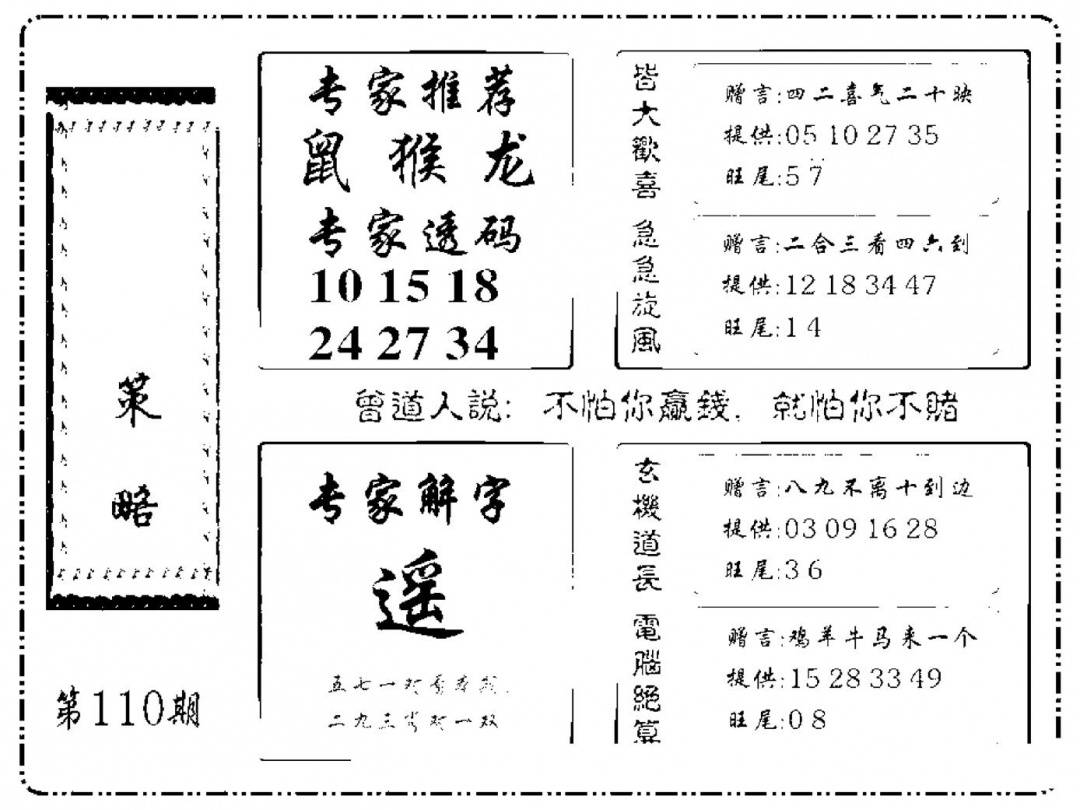 策略
第110期
专家推荐
鼠 猴 龙
专家透码
10 15 18
24 27 34
皆大歡喜
赠言:四二喜气二十映
提供:05 10 27 35
旺尾:5 7
急急旋風
赠言:二合三看四六到
提供:12 18 34 47
旺尾:1 4
曾道人説: 不怕你贏錢, 就怕你不賭
专家解字
遥
五七一对看
二九三肖对一双
玄機道長
赠言:八九不离十到边
提供:03 09 16 28
旺尾:3 6
電腦絕算
赠言:鸡羊牛马来一个
提供:15 28 33 49
旺尾:0 8